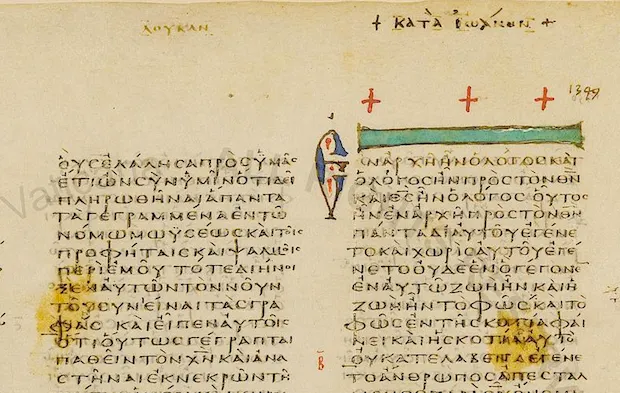 ΛΟΥΚΑΝ
+ ΚΑΤᾺ ἸΩΆΝΝΗΝ +
1349
ΟΥϹΕΛΑΛΗϹΑΠΡΟϹΥΜΑϹ
ΕΤΙΩΝϹΥΝΥΜΙΝΟΤΙΔΕΙ
ΠΛΗΡΩΘΗΝΑΙΑΠΑΝΤΑ
ΤΑΓΕΓΡΑΜΜΕΝΑΕΝΤΩ
ΝΟΜΩΜΩΥϹΕΩϹΚΑΙΤΟΙϹ
ΠΡΟΦΗΤΑΙϹΚΑΙΨΑΛΜΟΙϹ
ΠΕΡΙΕΜΟΥΤΟΤΕΔΙΗΝΟΙ
ΞΕΝΑΥΤΩΝΤΟΝΝΟΥΝ
ΤΟΥϹΥΝΕΙΝΑΙΤΑϹΓΡΑ
ΦΑϹ ΚΑΙΕΙΠΕΝΑΥΤΟΙϹ
ΟΤΙΟΥΤΩϹΓΕΓΡΑΠΤΑΙ
ΠΑΘΕΙΝΤΟΝΧΝΚΑΙΑΝΑ
ϹΤΗΝΑΙΕΚΝΕΚΡΩΝΤΗ
ΕΝΑΡΧΗΗΝΟΛΟΓΟϹΚΑΙ
ΟΛΟΓΟϹΗΝΠΡΟϹΤΟΝΘΝ
ΚΑΙΘϹΗΝΟΛΟΓΟϹΟΥΤΟϹ
ΗΝΕΝΑΡΧΗΠΡΟϹΤΟΝΘΝ
ΠΑΝΤΑΔΙΑΥΤΟΥΕΓΕΝΕ
ΤΟΚΑΙΧΩΡΙϹΑΥΤΟΥΕΓΕ
ΝΕΤΟΟΥΔΕΕΝΟΓΕΓΟΝΕ
ΕΝΑΥΤΩΖΩΗΗΝΚΑΙΗ
ΖΩΗΗΝΤΟΦΩϹΚΑΙΤΟ
ΦΩϹΕΝΤΗϹΚΟΤΙΑΦΑΙ
ΝΕΙΚΑΙΗϹΚΟΤΙΑΑΥΤΟ
ΟΥΚΑΤΕΛΑΒΕΝΕΓΕΝΕ
ΤΟΑΝΘΡΩΠΟϹΑΠΕϹΤΑΛ